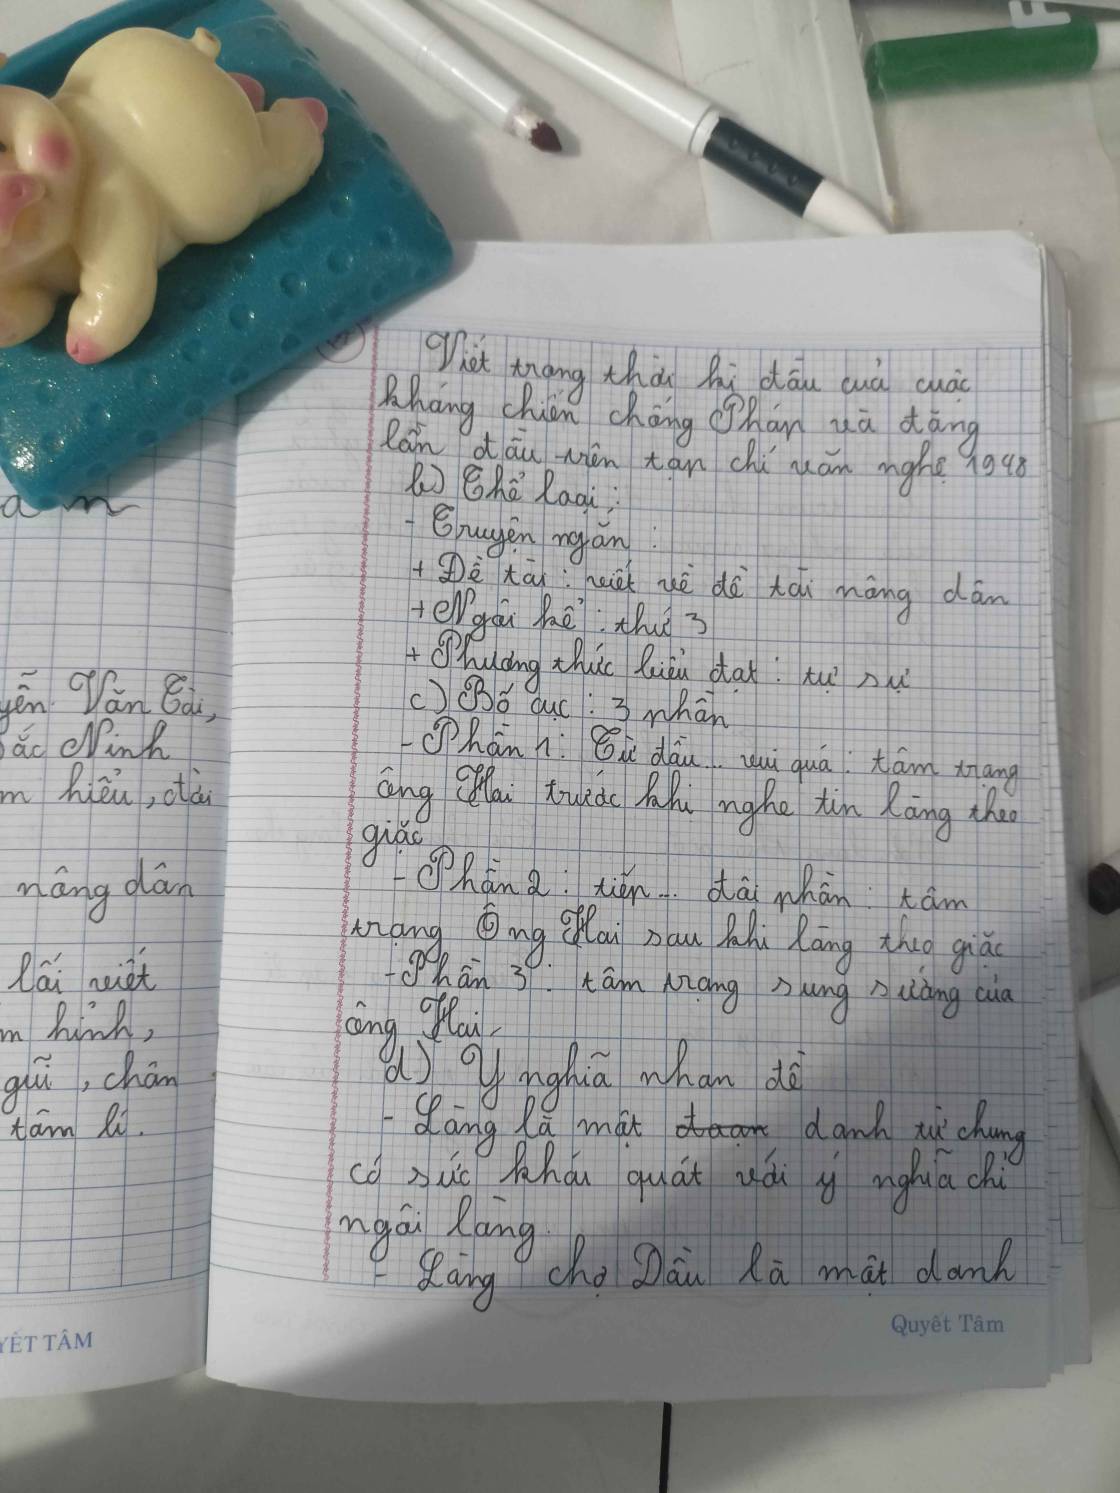 a m
yễn Văn Tài,
Bắc Ninh
m hiểu, đài
nông dân
lối viết
m hỉnh,
gũi, chân
tâm lí.
YẾT TÂM
Viết trong thời kì đầu cuả cuộc
kháng chiến chống Pháp và đăng
lần đầu trên tạp chí văn nghệ 1948
b) Thể loại:
- Truyện ngắn:
+ Đề tài: viết về đề tài nông dân
+ Ngôi kể: thứ 3
+ Phương thức biểu đạt: tự sự
c) Bố cục: 3 phần
- Phần 1: Từ đầu... vui quá: tâm trạng
ông Hai trước khi nghe tin làng theo
giặc
- Phần 2: tiếp... đôi phần: tâm
trạng Ông Hai sau khi làng theo giặc
- Phần 3: tâm trạng sung sướng của
ông Hai,
d) Ý nghĩa nhan đề
- Làng là một danh từ chung
có sức khái quát với ý nghĩa chỉ
ngôi làng.
- Làng chợ Dầu là một danh
Quyết Tâm